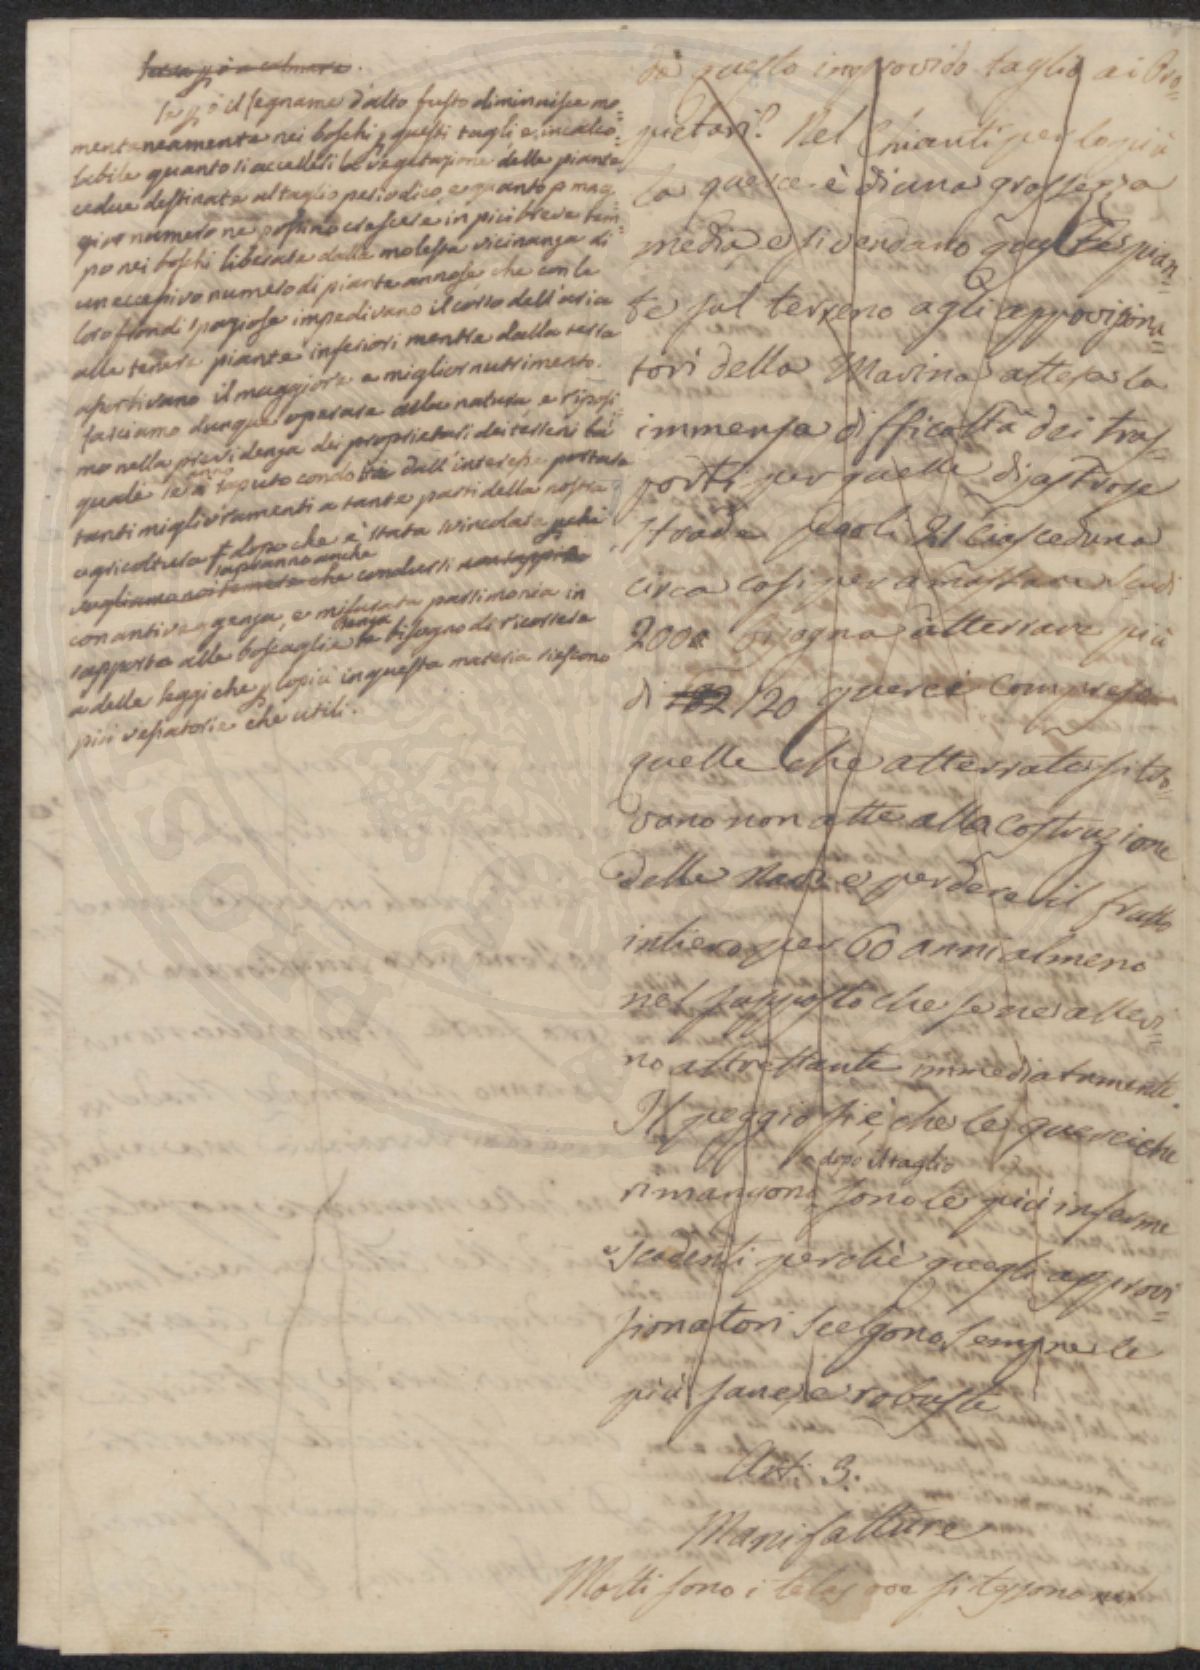 Se però il legname d'alto fusto diminuisce mo=
mentaneamente nei boschi p questi tagli, è incalco=
labile quanto si acceleri la vegetazione delle piante
cedue destinate al taglio periodico, e quanto p mag
gior numero ne possino crescere in più breve tem=
po nei boschi liberate dalla molesta vicinanza di
un eccessivo numero di piante annose che con le
loro frondi spaziose impedivano il corso dell'aria
alle tenere piante inferiori mentre dalla terra
assorbivano il maggiore e miglior nutrimento.
Lasciamo dunque operare alla natura, e riposi=
mo nella previdenza dei proprietari dei terreni la
quale saputo condotta dall'interesse portare
tanti miglioramenti a tante parti della nostra
agricoltura dopo che è stata svincolata
sapranno anche
vogliamo noi temere che condursi non sappia
con antiveggenza, e misurata parsimonia in
rapporto alle boscaglie senza bisogno di ricorrere
a delle leggi che p lo più in questa materia riescono
più vessatorie che utili.
da questo improvido taglio ai Pro=
pietari? Nel Chianti per lo più
la querce è di una grossezza
media, e si vendano queste pian=
te sul terreno agli approvisiona=
tori della Marina attesa la
immensa difficoltà dei tras=
porti per quelle disastrose
strade paoli 21 ciascheduna
circa cosi per ammassare scudi
2000 bisogna atterrare più
di 120 querci compreso
quelle che atterrate si tro=
vano non atte alla costruzione
delle Navi e perdere il frutto
intiero per 60 anni almeno
nel supposto che se ne allevi=
no altrettante immediatamente.
Il peggio si è, che le querci che
dopo il taglio
rimangono sono le più inferme
e scadenti perchè quegli approvi=
sionatori scelgono sempre le
più sane, e robuste
Art: 3.
Manifatture
Molti sono i telaj ove si tessono nel